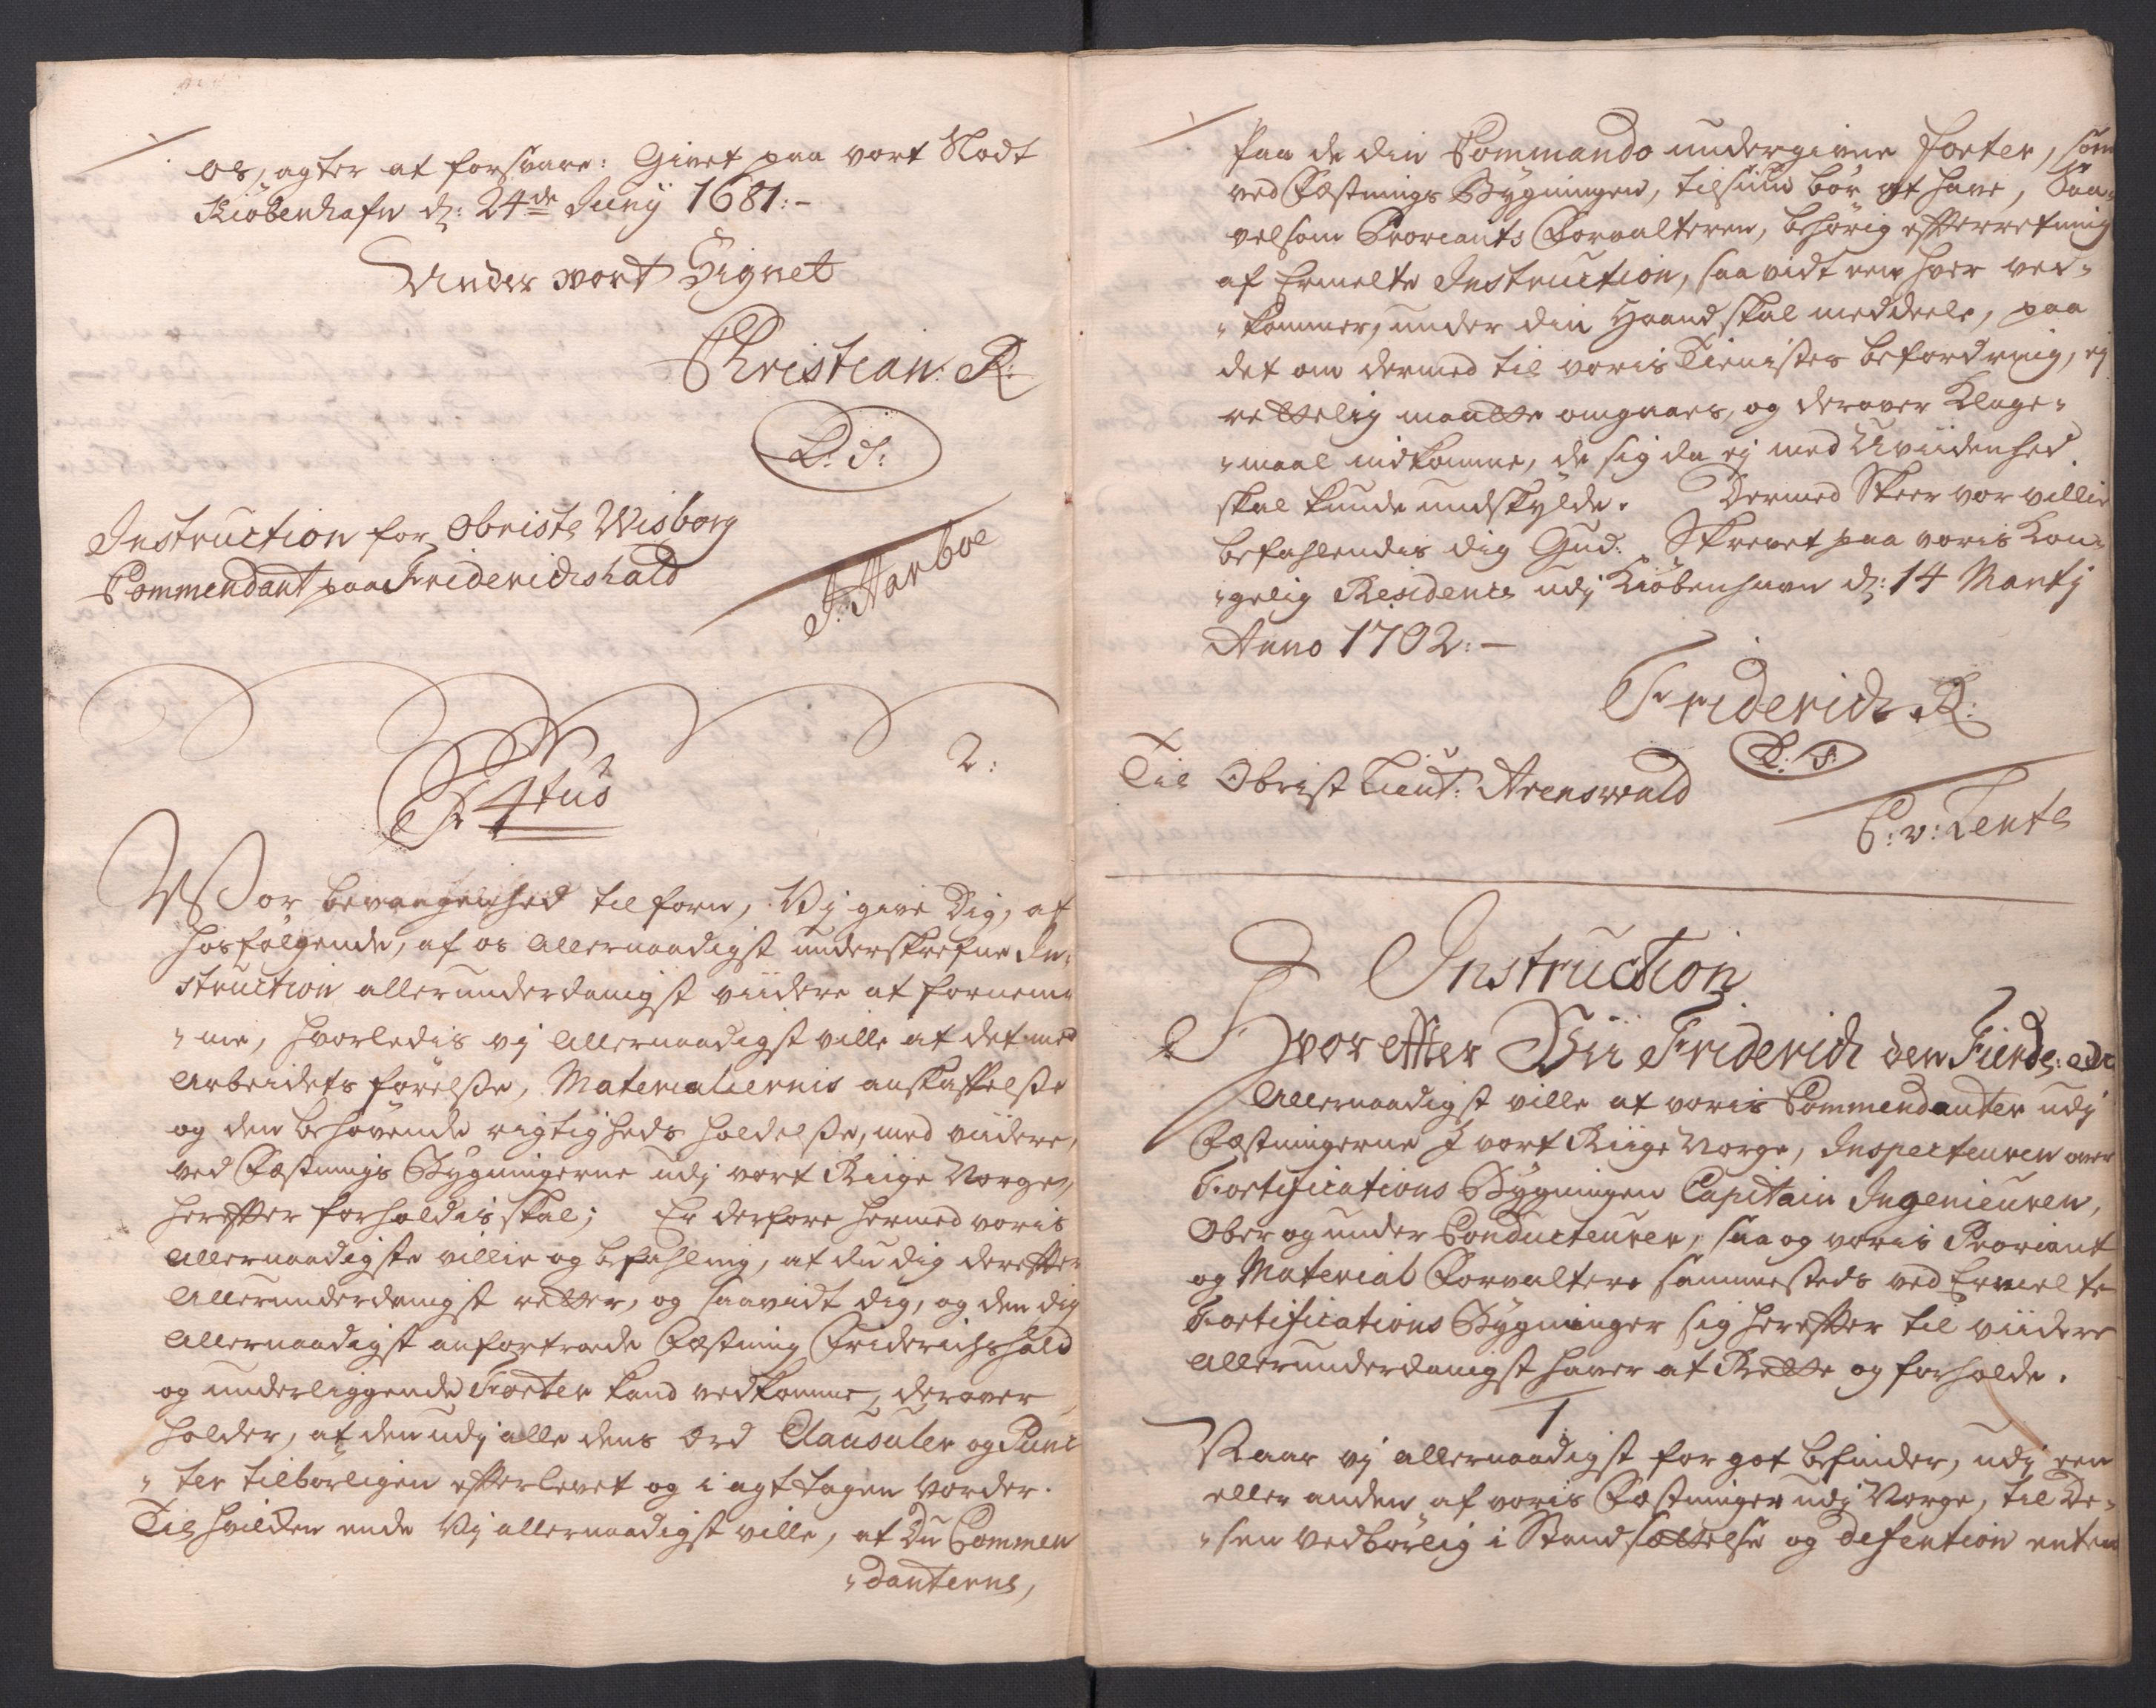 os, agter at forsvare: Givet paa vort Slodt
Kiöbenhafn d: 24de Junij 1681:-
Under vort Signet
Christian: R:
L: S:
Instruction for Obriste Wisborg
Commendant paa Friderichshald
J: Harboe
2:
Fr 4tus
Vor bevaagenhed tilforn, Vij give Dig, af
hosfølgende, af os allernaadigst underskrefne In-
struction allerunderdanigst viidere at fornem-
"me, hvorledis vj allernaadigst ville at det med
arbeidets förelsse, Materialiernis anskaffelsse
og den behøvende rigtigheds holdelsse, med viidere,
ved Fæstnings Bÿgningerne udj vort Riige Norge,
herefter forholdis skal; Er derfore hermed voris
allernaadigste villie og befahling, at du dig derefter
allerunderdanigst retter, og saavidt dig, og den dig
allernaadigst anfortroede Fæstning Friderichshald
og underliggende Forter kand vedkomme, derover
holder, at den udj alle dens Ord Clausuler og Punc
"ter tilbørligen efterlevet og i agt tagen vorder.
Til hvilken ende Vj allernaadigst ville, at Du Commen
"danterne,
Paa de din Commando undergivne Forter, som
ved Fæstnings Bÿgningen, tilsiun bør at have, Saa-
velsom Proviants Forvalteren, behørig efterretning
af Ermelte Instruction, saavidt een hver ved-
"kommer, under din Haand skal meddeele, paa
det om dermed til voris Tienistes befordring, ej
rettelig maatte omgaaes, og derover Klage-
"maal indkomme, de sig da ej med Uviidenhed
skal kunde undskÿlde. Dermed Skeer vor villie
befahlendis dig Gud. Skrevet paa voris Kon-
"gelig Residence udj Kiöbenhavn d: 14 Martj
Anno 1702:-
Friderich R:
L: S:
Til Obrist Lieut: Arenswald
C: v: Lente
Instruction
Hvorefter Vii Friderich den Fierde: etc
Allernaadigst ville at voris Commendanter udj
Fæstningerne I vort Riige Norge, Inspecteuren over
Fortifications Bÿgningen Capitain Ingenieuren,
Ober og under Conducteurer, saa og voris Proviant
og Material Forvaltere sammesteds ved Ermelte
Fortifications Bÿgninger sig herefter til viidere
allerunderdanigst haver at Rette og forholde.
1
Naar vj allernaadigst for got befinder, udj een
eller anden af voris Fæstninger udj Norge, til De-
"sen vedbörlig i Stand sættelse og defention enten